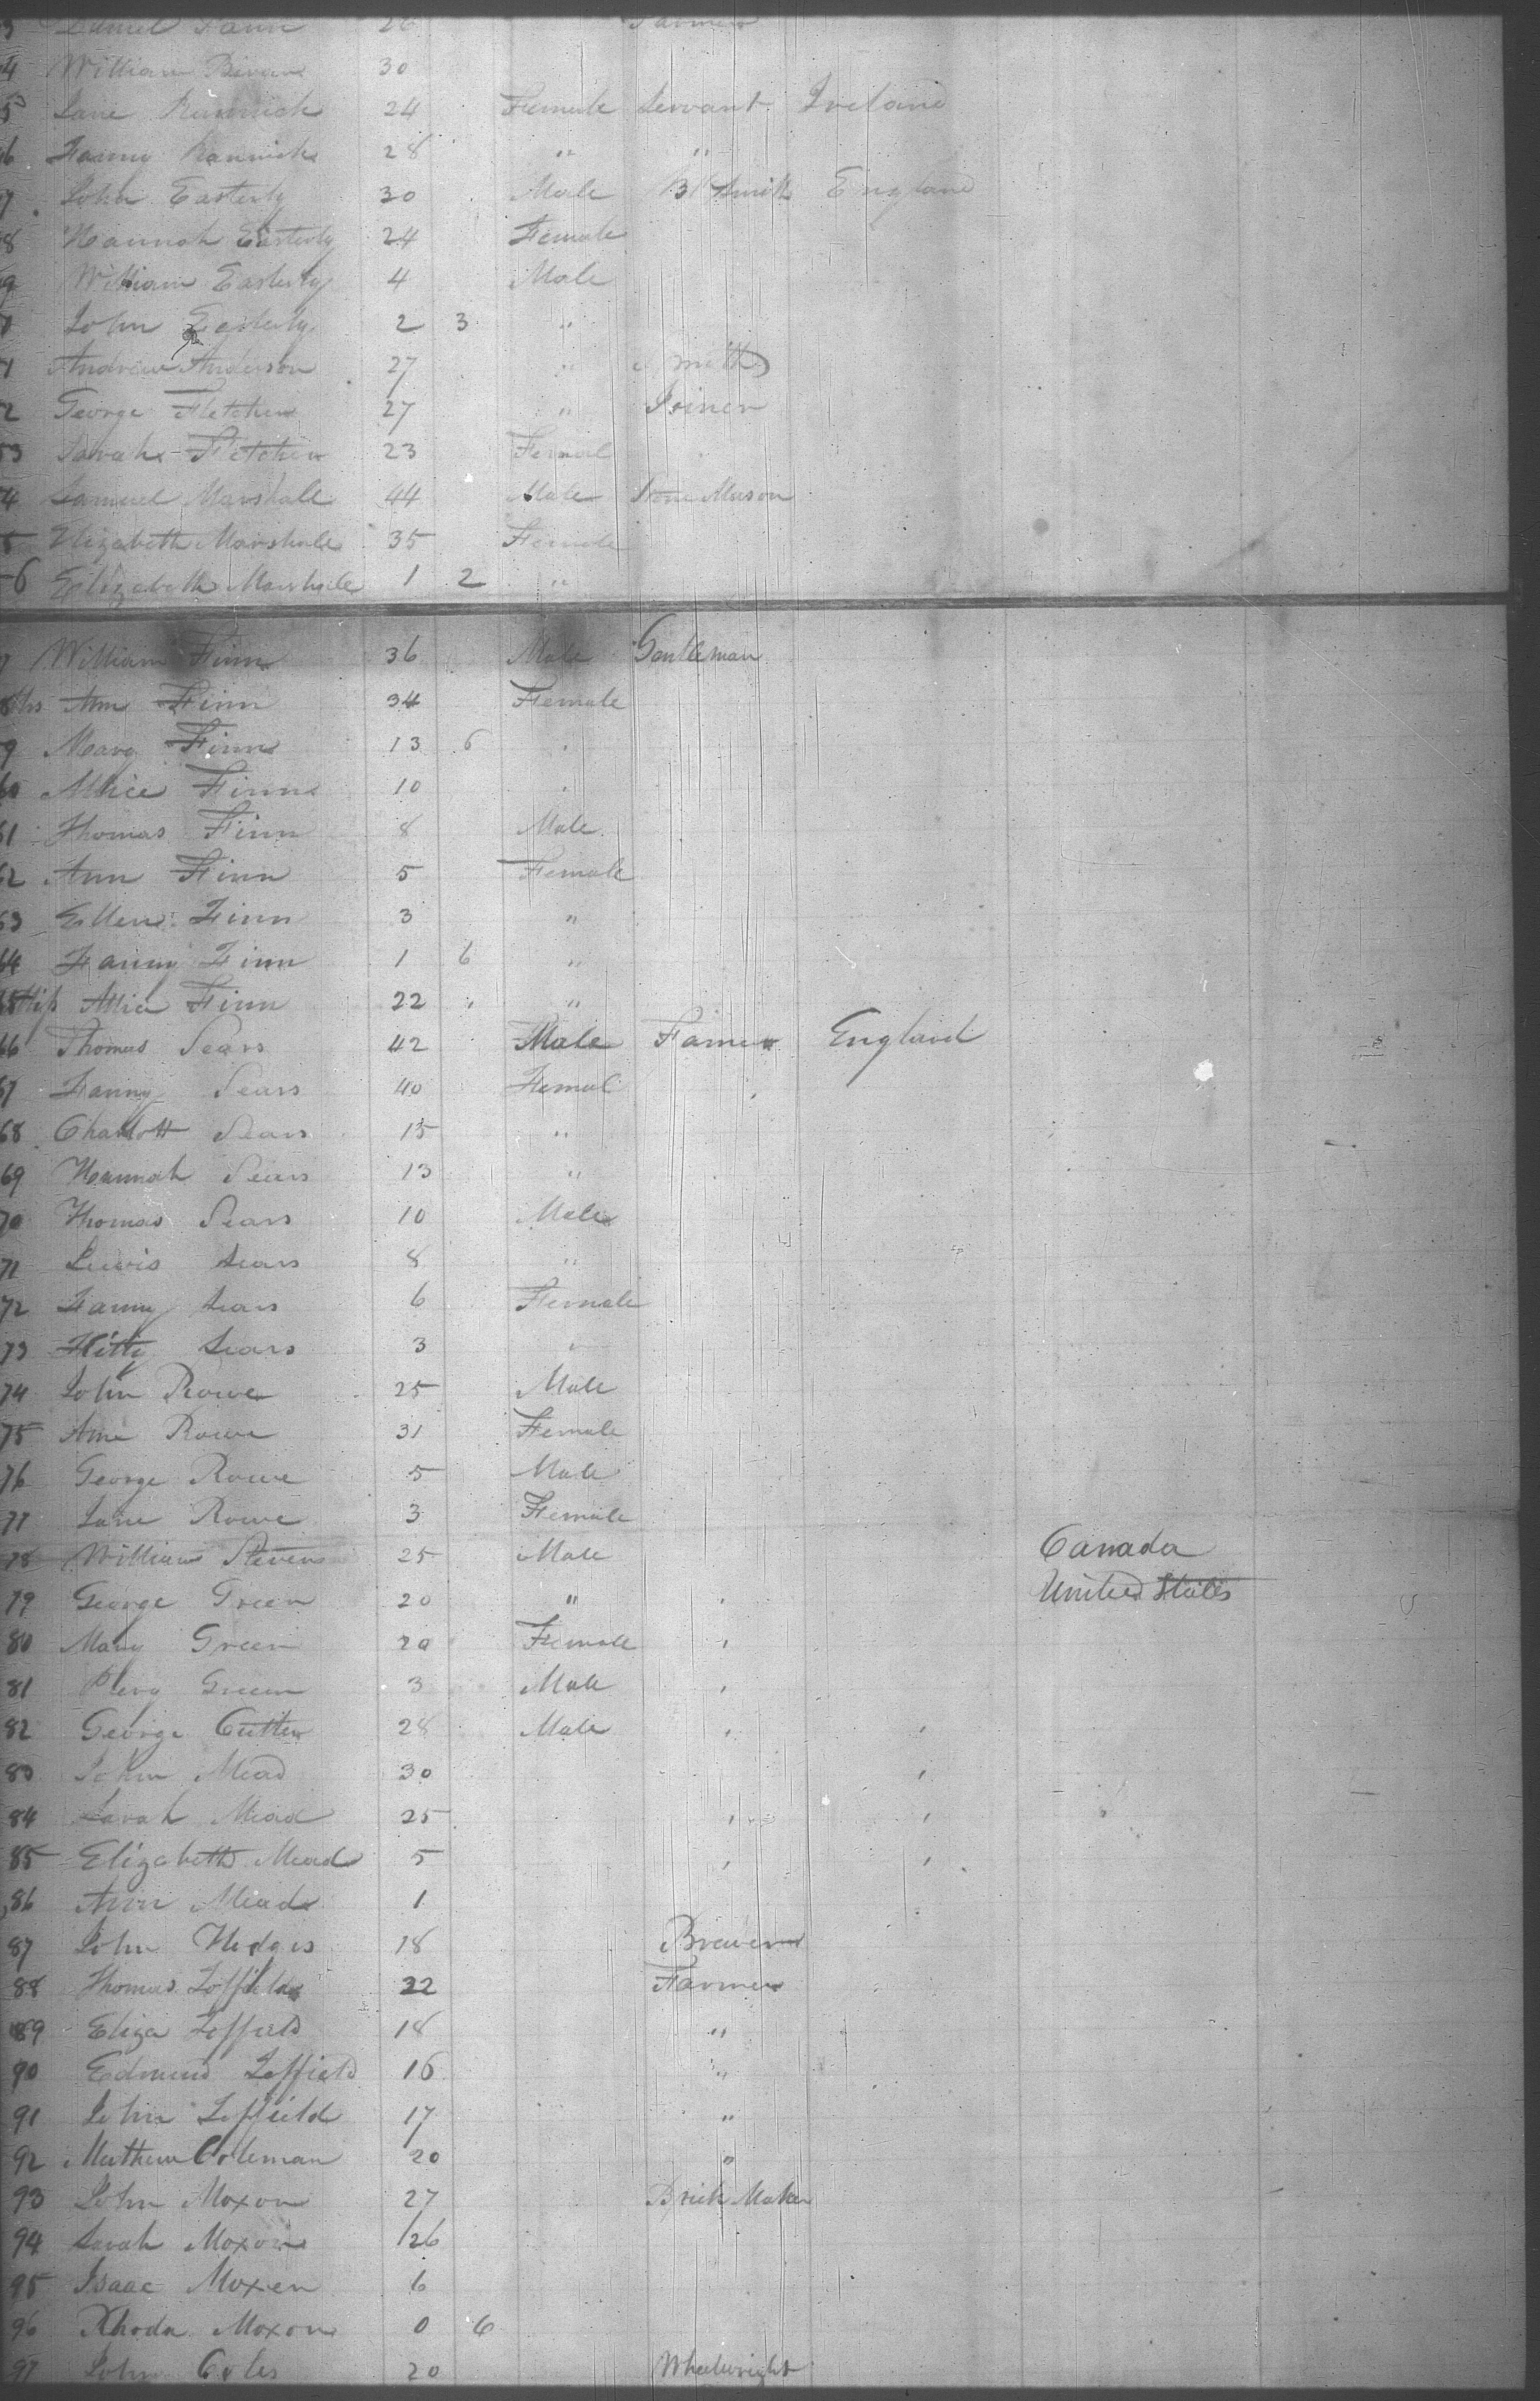 3 Daniel Fann 26 Farmer
4 William 30
5 Jane 24 Female Servant Ireland
6 Fanny 28 " "
7 John Easterly 30 Male Bl Smith England
8 Hannah Easterly 24 Female
9 William Easterly 4 Male
John Easterly 2 3 "
1 Andrew Anderson 27 " Smith
2 George Fletcher 27 " Joiner
53 Sarah Fletcher 23 Femail
4 Samuel Marshall 44 Male Stone Mason
5 Elizabeth Marshall 35 Female
6 Elizabeth Marshall 1 2 "
7 William Finn 36 Male Gentleman
8 Mrs Ann Finn 34 Female
9 Mary Finn 13 6 "
60 Allice Finn 10 "
61 Thomas Finn 8 Male
62 Ann Finn 5 Female
63 Ellen Finn 3 "
64 Fanny Finn 1 6 "
65 Miss Allice Finn 22 "
66 Thomas Sears 42 Male Farmer England
67 Fanny Sears 40 Femal
68 Charlott Sears 15 "
69 Hannah Sears 13 "
70 Thomas Sears 10 Male
71 Lewis Sears 8 "
72 Fanny Sears 6 Female
73 Kitty Sears 3 "
74 John Rowe 25 Male
75 Ann Rowe 31 Female
76 George Rowe 5 Male
77 Jane Rowe 3 Female
78 William Stevens 25 Male Canada
79 George Green 20 " " United States
80 Mary Green 20 Female "
81 Green 3 Male "
82 George Cutter 28 Male " "
83 John Mead 30 "
84 Sarah Mead 25 " "
85 Elizabeth Mead 5 " "
86 Ann Mead 1
87 John Hedges 18 Brewer
88 Thomas Loffield 22 Farmer
89 Eliza Loffield 18 "
90 Edmund Loffield 16 "
91 John Loffield 17 "
92 Matthew Coleman 20 "
93 John Moxon 27 Brick Maker
94 Sarah Moxon 26
95 Isaac Moxen 6
96 Rhoda Moxon 0 6
97 John Coles 20 Wheelwright